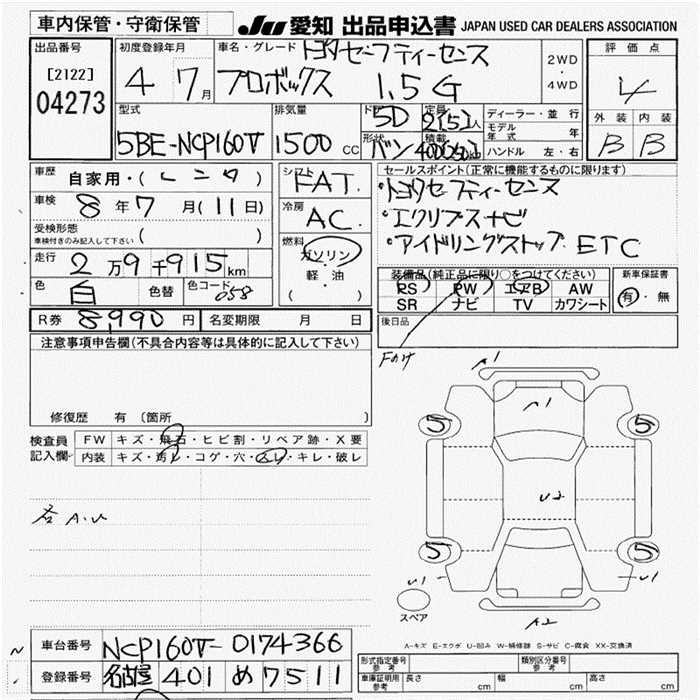 車内保管・守衛保管
JU 愛知 出品申込書 JAPAN USED CAR DEALERS ASSOCIATION
出品番号
[2122]
04273
初度登録年月
4 7月
車名・グレード トヨタセーフティーセンス
プロボックス 1.5G
2WD
・
4WD
評価点
4
外装 内装
B B
型式
5BE-NCP160V
排気量
1500 cc
ドア 5D
形状 バン
定員 2(5)人
積載
ディーラー・並行
モデル年式 年
ハンドル 左・右
車歴 自家用・(レンタ)
車検 8年7月(11日)
受検形態
車検付きのみ記入して下さい ( )
走行 2万9千915km
色 白 色替 色コード 058
シフト FAT.
冷房 AC.
燃料
ガソリン
・
軽・油
( )
セールスポイント(正常に機能するものに限ります)
・トヨタセーフティーセンス
・エクリプスナビ
・アイドリングストップ ETC
装備品(純正品に限り○をつけてください)
PS PW エアB AW
SR ナビ TV カワシート
新車保証書
有・無
R券 8,990円 名変期限 月 日
後日品
注意事項申告欄(不具合内容等は具体的に記入して下さい)
修復歴 有 (箇所 )
検査員記入欄
FW キズ・飛石・ヒビ割・リペア跡・X要
内装 キズ・汚レ・コゲ・穴・スレ・キレ・破レ
各A.U
A1
A1
5 5
U2
5 5
U1 U1
スペア
A2
A-キズ E-エクボ U-凹み W-補修跡 S-サビ C-腐食 XX-交換済
車台番号 NCP160V-0174366
登録番号 名古屋 401 め 7511
形式指定番号 参考
類別区分番号 参考
車庫証明用 参考 長さ cm 幅 cm 高さ cm